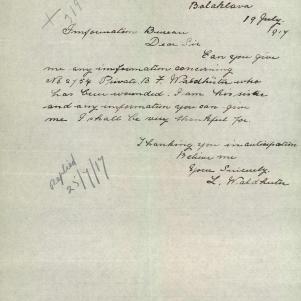 Balaklava
19 July
1917
Imformation Bureau
Dear Sir
Can you give
me any imformation concerning
No 2754 Private B. F. Waldhuter who
has been wounded. I am his sister
and any imformation you can give
me I shall be very thankful for.
Thanking you in anticipation
Believe me
Yours Sincerely
L. Waldhuter
Replied
25/7/17